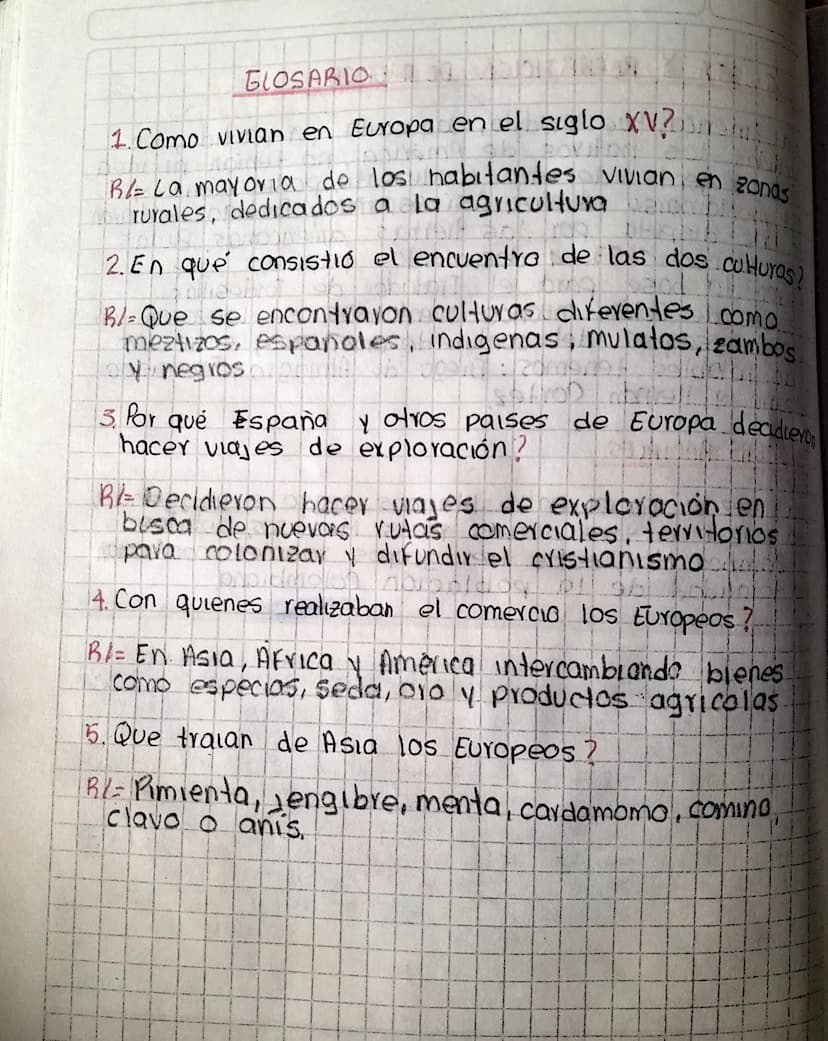 GLOSARIO
1. Como vivian en Europa en el siglo XV?
R/= La mayoria de los habitantes vivian en zonas
rurales, dedicados a la agricultura
2. En qué consistió el encuentro de las dos culturas?
R/= Que se encontraron culturas diferentes como
meztizos, españoles, indigenas, mulatos, zambos
y negros
3. Por qué España y otros paises de Europa decidieron
hacer viajes de exploración?
R/= Decidieron hacer viajes de exploración en
busca de nuevas rutas comerciales, territorios
para colonizar y difundir el cristianismo
4. Con quienes realizaban el comercio los Europeos?
R/= En Asia, África y América intercambiando bienes
como especias, seda, oro y productos agricolas
5. Que traian de Asia los Europeos?
R/= Pimienta, jengibre, menta, cardamomo, comino,
clavo o anís.